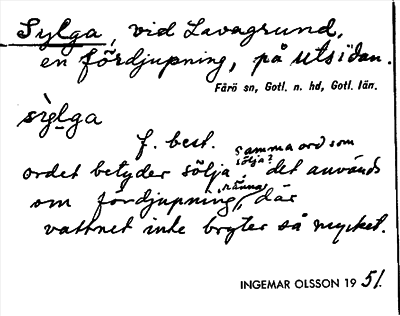 Sylga, vid Lavagrund,
en fördjupning, på utsidan.
Fårö sn, Gotl. n. hd, Gotl. län.
sìg̲lga
f. best. samma ord som
sölja?
ordet betyder sölja, det används
ränna
om fördjupning, där
vattnet inte bryter så mycket.
INGEMAR OLSSON 1951.